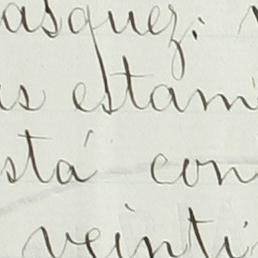 asquez.
as estam
stá con
veinti